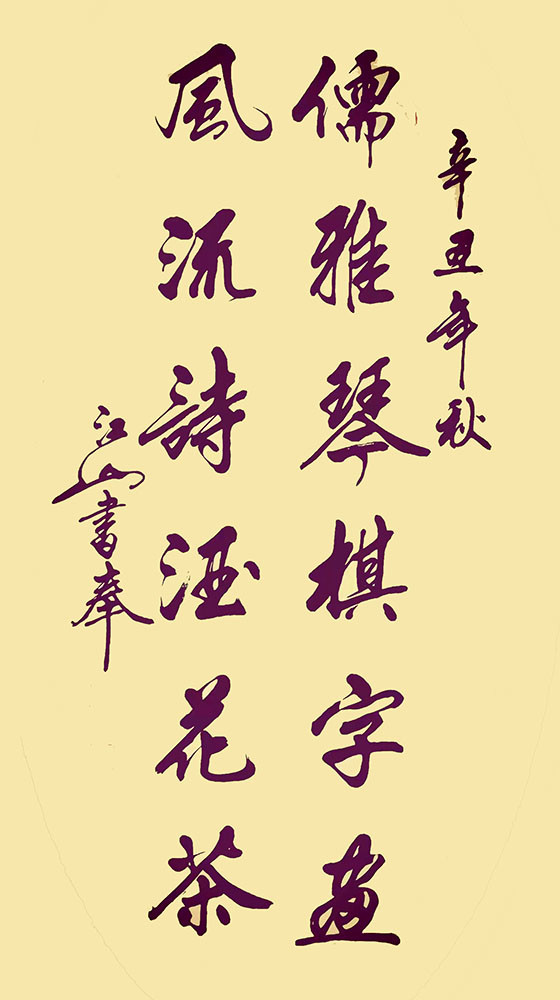 辛丑年秋
儒雅琴棋字畫
風流詩酒花茶
江山書奉